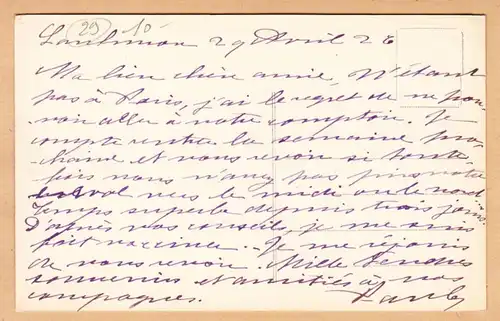 29 10
29 Avril 26
Ma bien chère amie, N'étant
pas à Paris, j'ai le regret de ne pou-
voir aller à votre comptoir. Je
compte rentrer la semaine pro-
chaine et vous revoir si toute-
fois vous n'avez pas pris votre
vol vers le midi ou le nord.
Temps superbe depuis trois jours.
D'après vos conseils, je me suis
fait vacciner. Je me réjouis
de vous revoir. Mille tendres
souvenirs et amitiés à vos
compagnes.